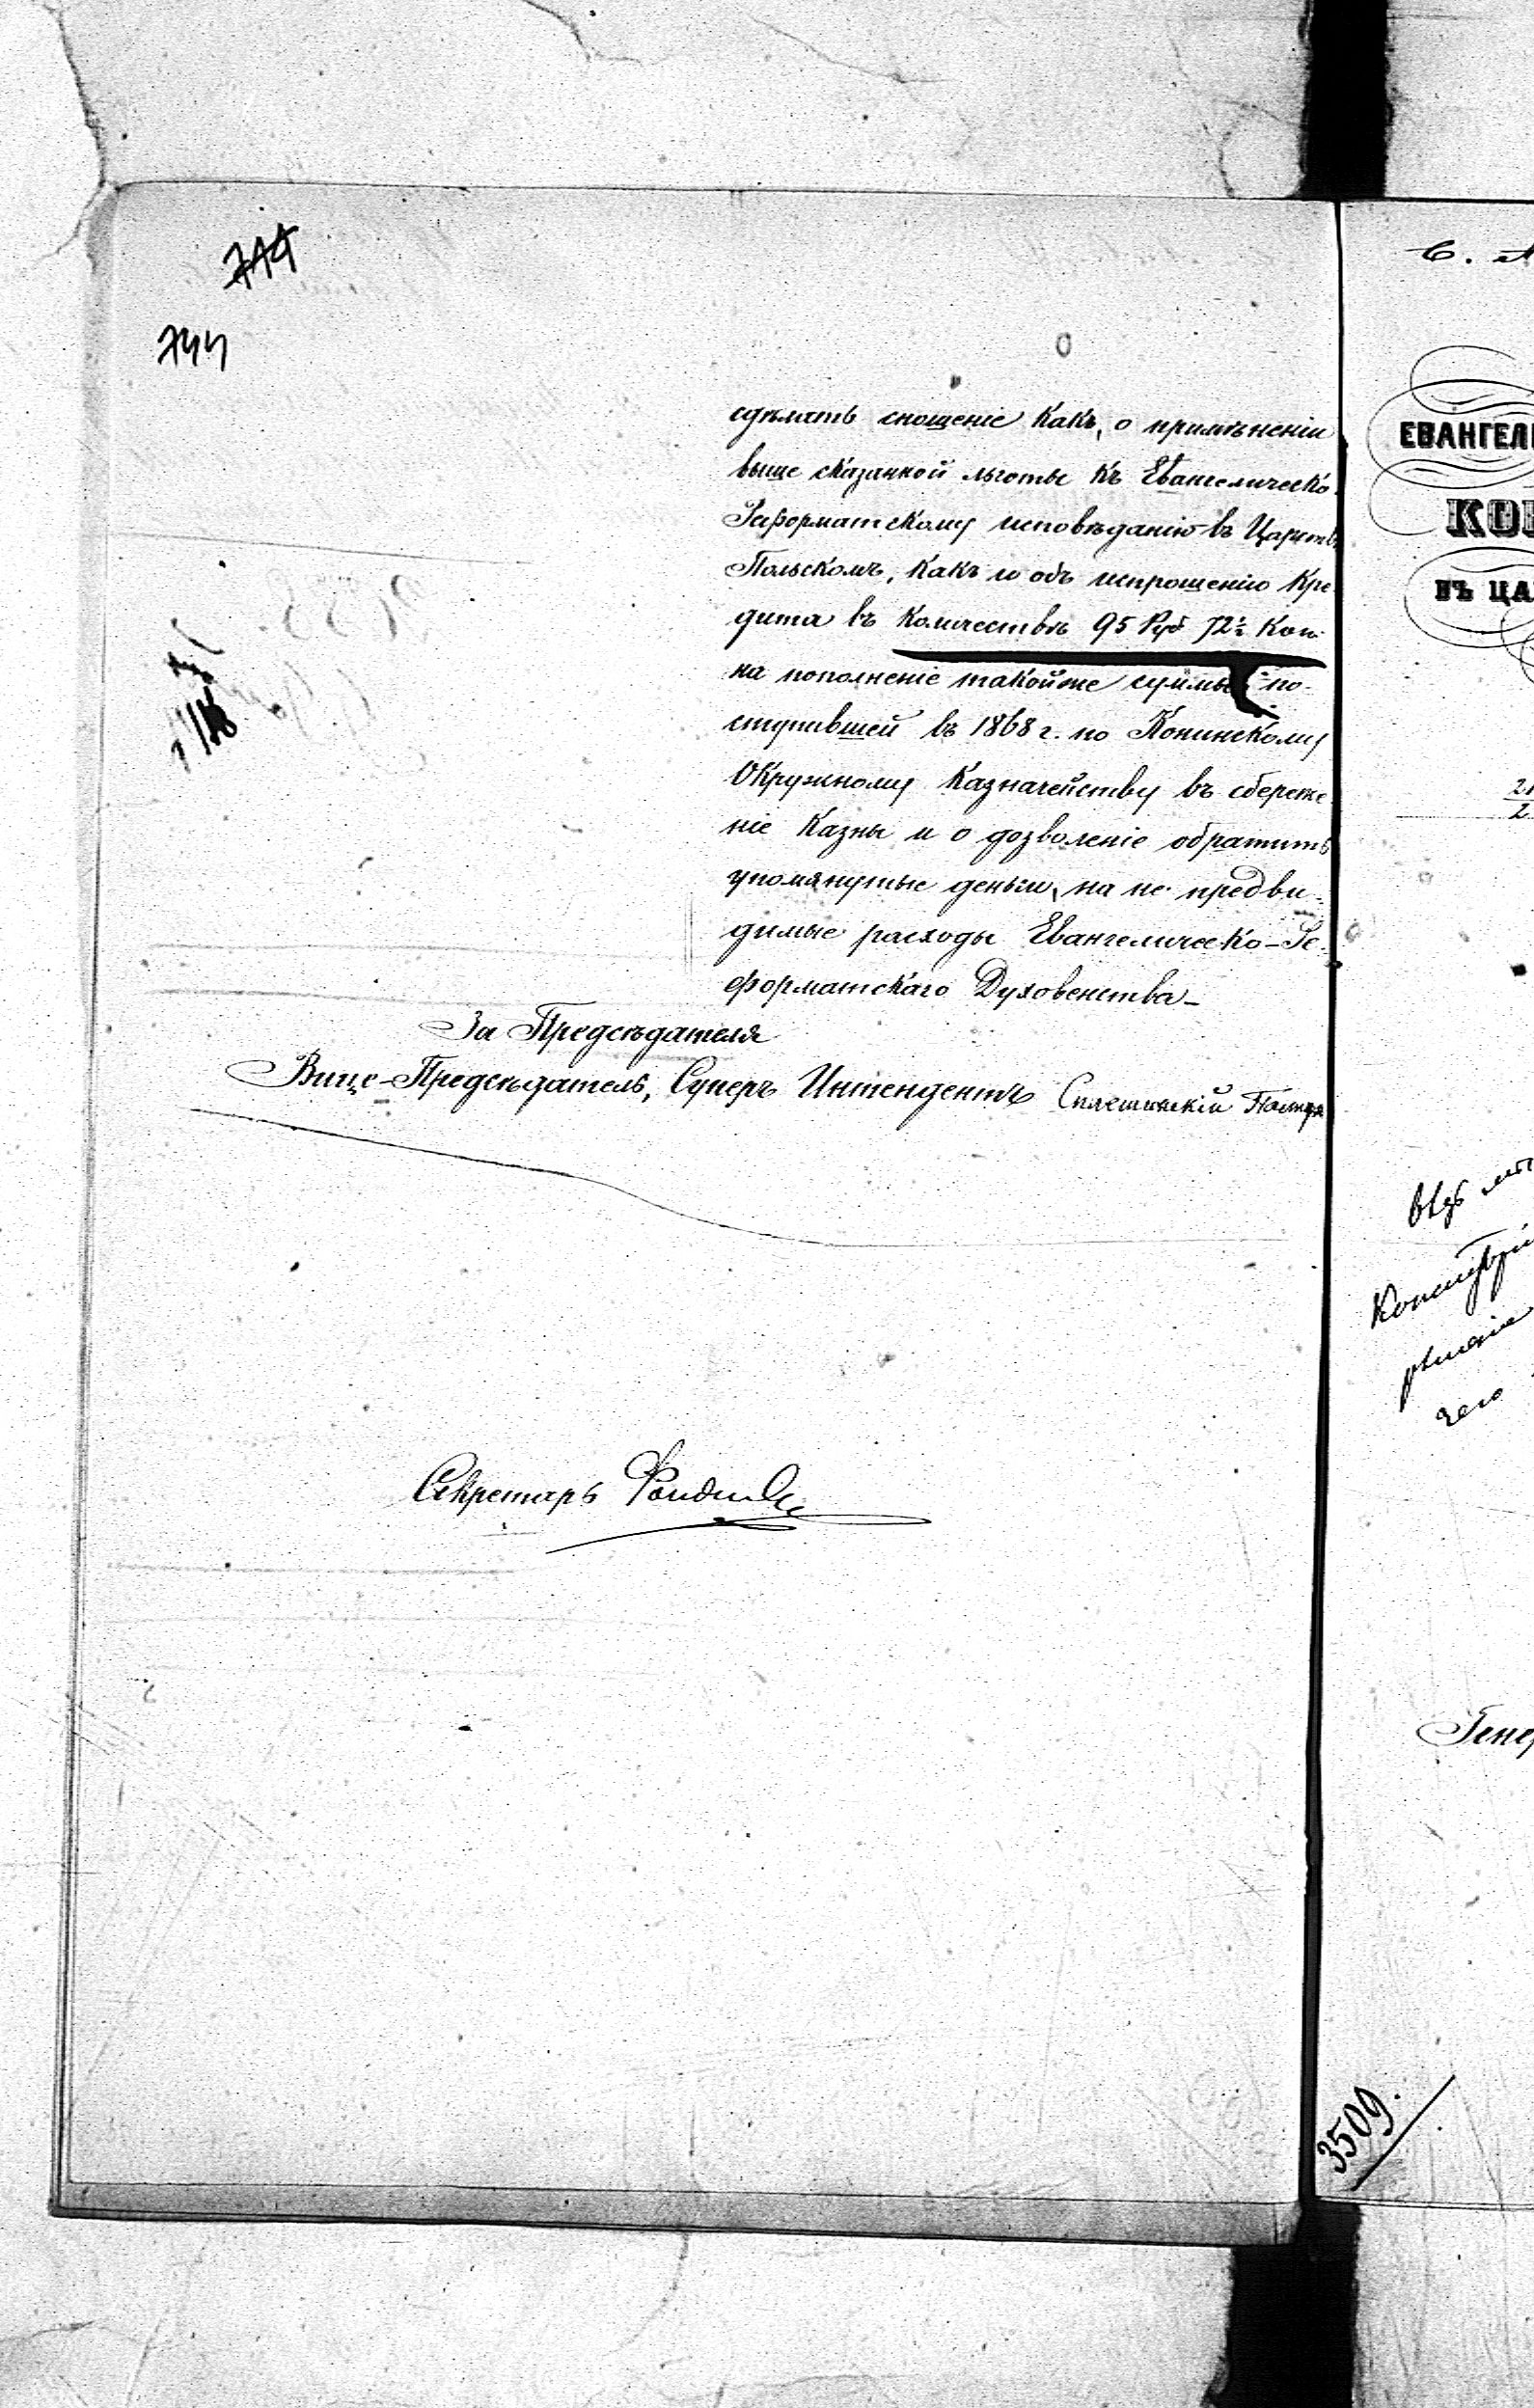 744
744
сдѣлать сношеніе какъ, о примѣненіи
выше сказанной льготы къ Евангелическо-
Реформатскому исповѣданію въ Царствѣ
Польскомъ, какъ и объ испрошеніи кре-
дита въ количествѣ 95 Руб 72½ Коп.
на пополненіе такойже суммы по-
ступившей въ 1868 г. по Конинскому
Окружному Казначейству въ сбереже-
ніе Казны и о дозволеніе обратить
упомянутые деньги, на не предви-
димые расходы Евангелическо-Ре-
форматскаго Духовенства
За Предсѣдателя
Вице-Предсѣдатель, Суперъ Интендентъ
Секретарь
С.
ЕВАНГЕЛИ
КОН
ВЪ ЦА
чего
Генер
3509.